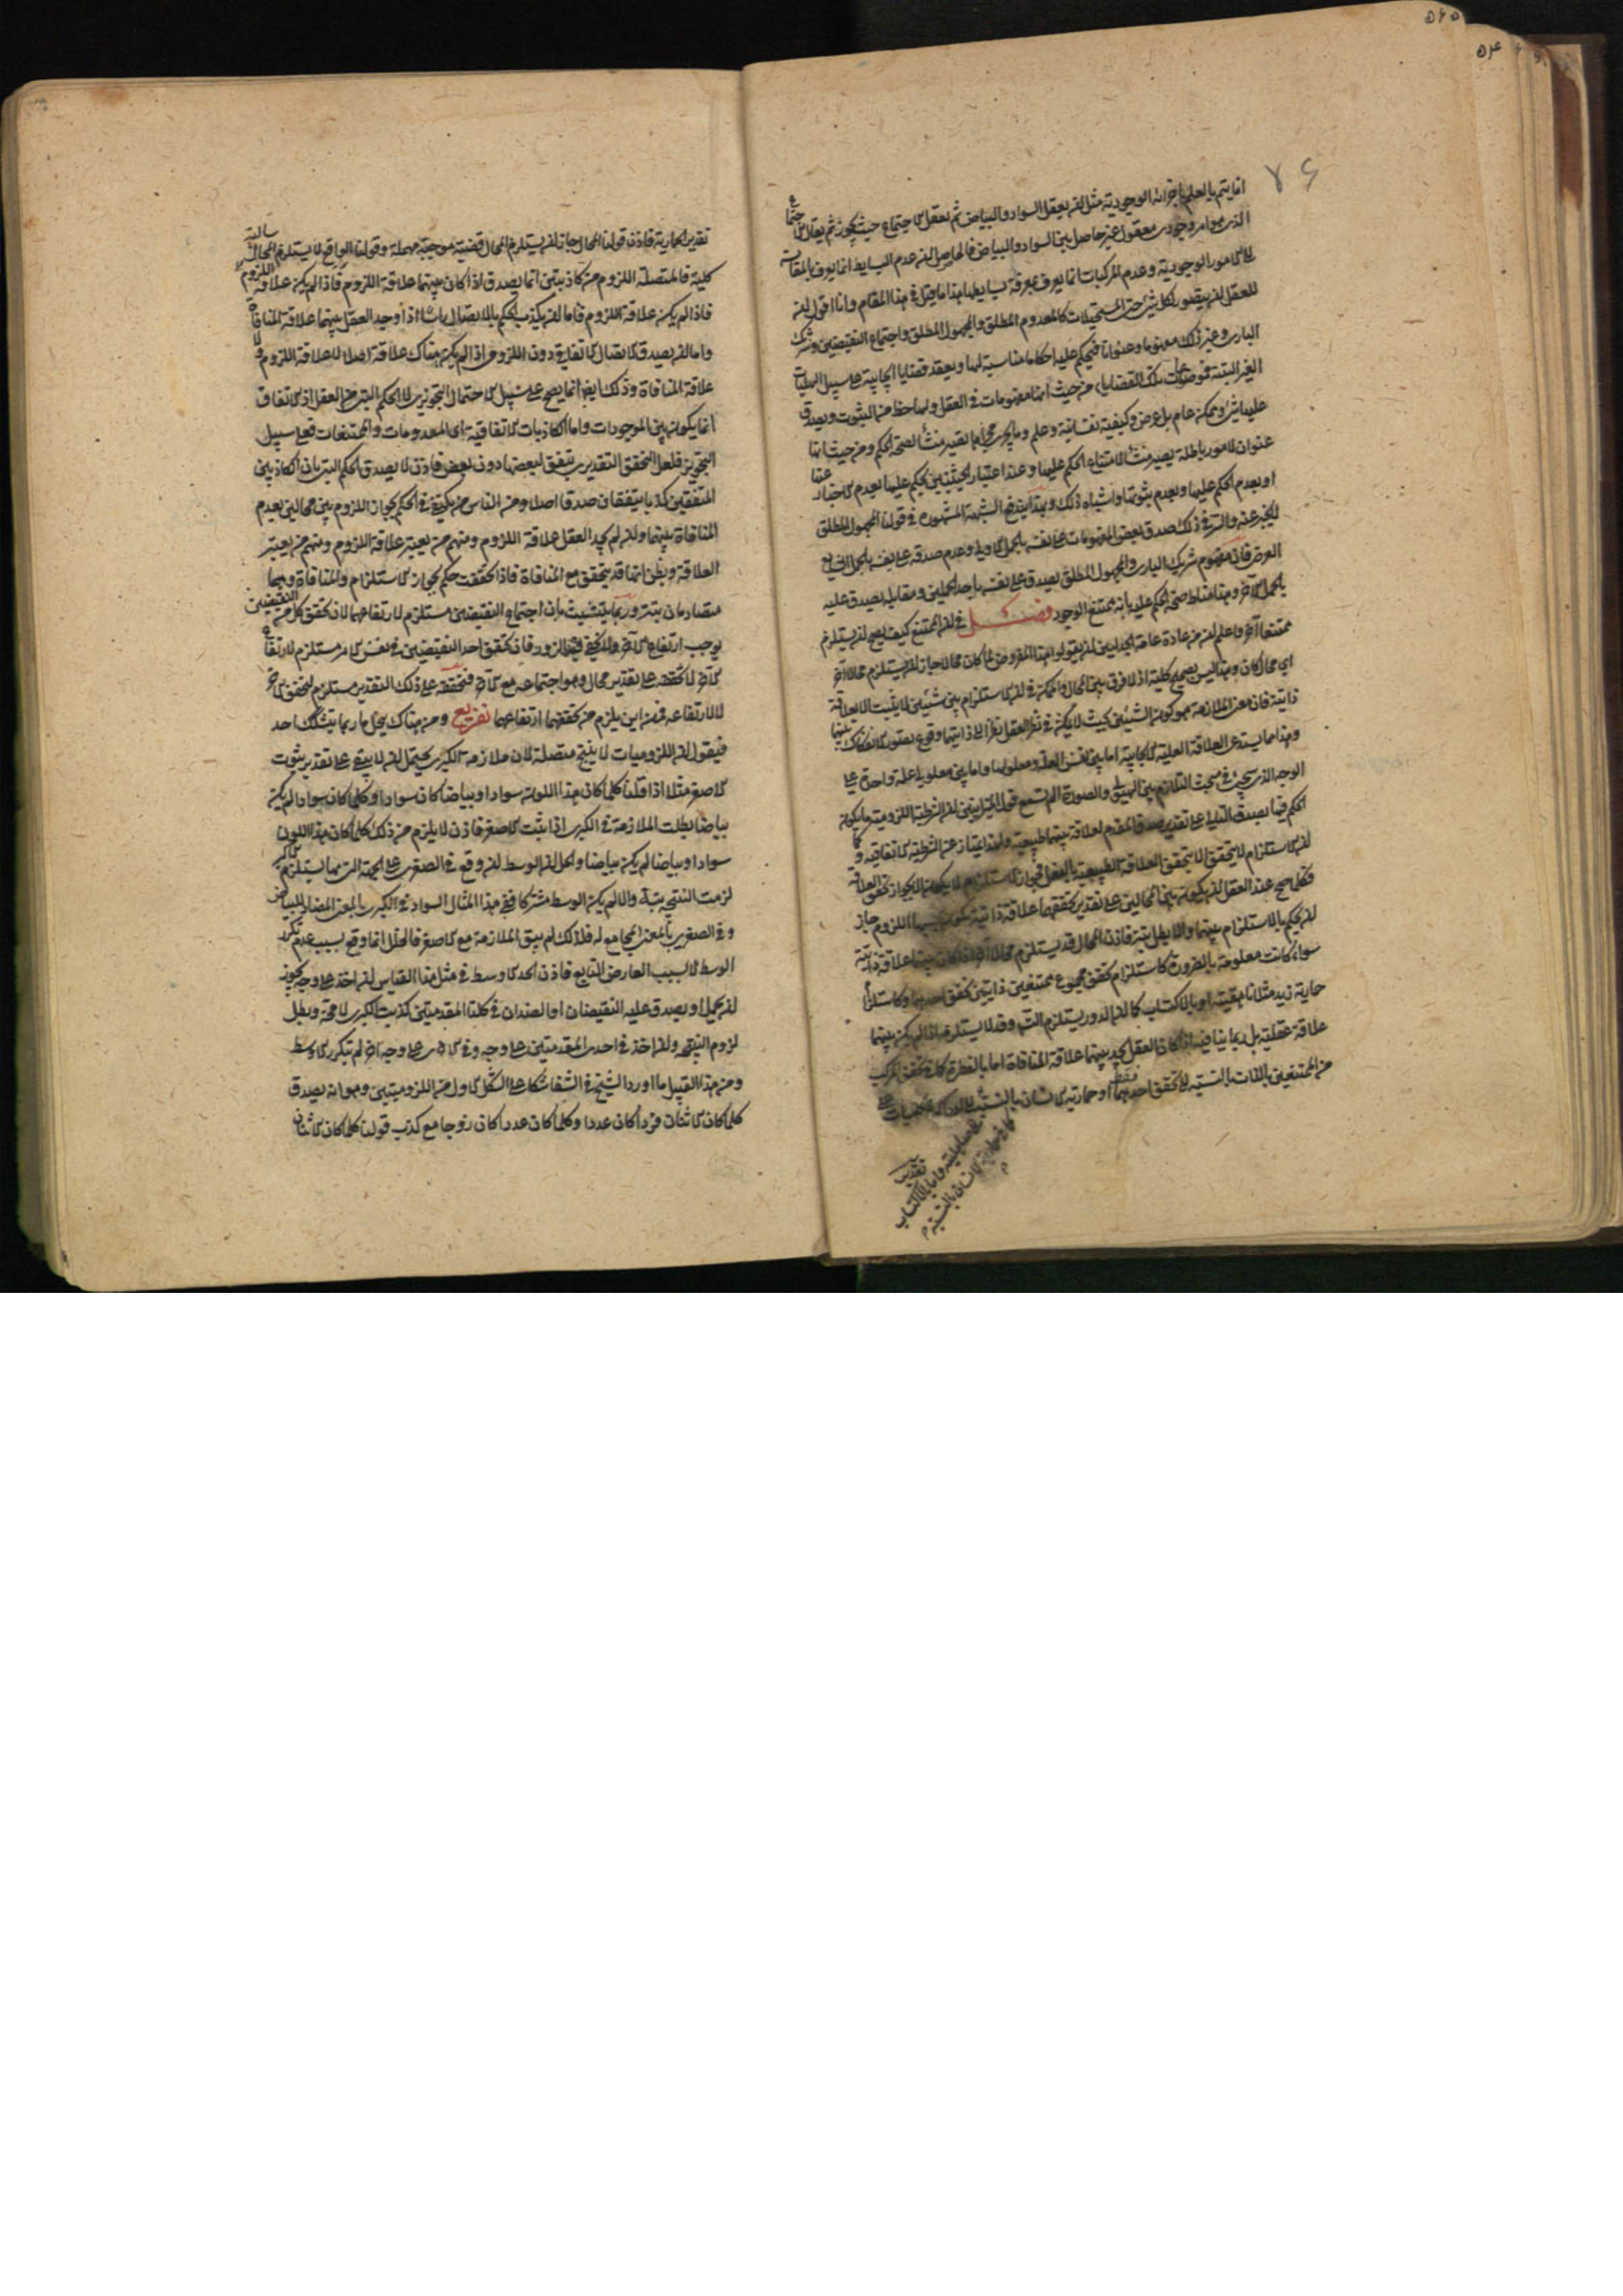 ٥٤٥
٥٤
٧٤
انما يتم بالعلم باجزائه الوجودية مثل ان يعقل السواد والبياض ثم يعقل الاجتماع حيث يجوز ثم يقال الاجتماع
الذي هو امر وجودي معقول غير حاصل بين السواد والبياض فالحاصل ان عدم البسايط انما يعرف بالمقايسة
الى الامور الوجودية وعدم المركبات انما يعرف بمعرفة بسايطها هذا ما قيل في هذا المقام وانا اقول ان
للعقل ان يتصور لكل شئ حتى المستحيلات كالمعدوم المطلق والمجهول المطلق واجتماع النقيضين وشريك
الباري وغير ذلك مفهوما وعنوانا فيحكم عليه احكاما مناسبة لها ويعقد قضايا ايجابية على سبيل الهليات
الغير البتية فموضوعات تلك القضايا من حيث انها مفهومات في العقل ولها حظ من الثبوت ويصدق
عليها شئ وممكن عام بل عرض وكيفية نفسانية وعلم وما يجري مجراها يصير منشأ لصحة الحكم ومن حيث انها
عنوان لامور باطلة يصير منشأ لامتناع الحكم عليها وعند اعتبار الحيثيتين يحكم عليها بعدم الاخبار عنها
او بعدم الحكم عليها وبعدم ثبوتها واشباه ذلك وبهذا يندفع الشبهة المشهورة في قولنا المجهول المطلق
لا يخبر عنه والسر في ذلك صدق بعض المفهومات على نفسه بالحمل الاولي وعدم صدقه على نفسه بالحمل الشايع
العرضي فان مفهوم شريك الباري والمجهول المطلق يصدق على نفسه باحد الحملين ومقابله يصدق عليه
بالحمل الاخر وهذا مناط صحة الحكم عليه بانه ممتنع الوجود فصل في ان الممتنع كيف يصح ان يستلزم
ممتنعا اخر واعلم ان من عادة عامة الجدليين ان يقولوا هذا المفروض لما كان محالا جاز ان يستلزم محالا اخر
اي محال كان وهذا ليس بصحيح كلية اذ لا فرق بين المحال والممكن في ان الاستلزام بين شيئين لا يثبت الا بعلاقة
ذاتية فان معنى الملازمة هو كون الشيئين بحيث لا يمكن في نظر العقل نظرا الى ذاتيهما وقوع تصور الانفكاك بينهما
وهذا مما يستدعي العلاقة العلية الايجابية اما بين نفس العلة ومعلولها واما بين معلولي علة واحدة على
الوجه الذي سيجئ في مبحث التلازم بين الهيولى والصورة الم تسمع قول الميزانيين ان الشرطية اللزومية ما يكون
الحكم فيها بصدق التالي على تقدير صدق المقدم لعلاقة بينهما طبيعية وبهذا يمتاز عن الشرطية الاتفاقية وكما
ان الاستلزام لا يتحقق الا بتحقق العلاقة الطبيعية بالفعل فجواز الاستلزام لا يكون الا بجواز تحقق العلاقة
فكلما صح عند العقل ان يكون بين المحالين على تقدير تحققهما علاقة ذاتية يكون بسببها اللزوم جاز
ان يحكم بالاستلزام بينهما والا بطل بتة فاذن المحال قد يستلزم محالا اخر اذا كان بينهما علاقة ذاتية
سواء كانت معلومة بالضرورة كاستلزام تحقق مجموع ممتنعين ذاتيين تحقق احدهما وكاستلزام
حمارية زيد مثلا ناهقيته او بالاكتساب كما ان الدور يستلزم التسلسل وقد لا يستلزم اذا لم يكن بينهما
علاقة عقلية بل ربما ينافيه اذا كان العقل يجد بينهما علاقة المنافاة اما بالفطرة كما في تحقق المركب
من الممتنعين بالذات بالنسبة الى تحقق احدهما فقط او حمارية الانسان بالنسبة الى ادراك الكليات على
تقدير
كما في حمارية الانسان بالنسبة
تقدير الحمارية فاذن قولنا المحال جاز ان يستلزم المحال قضية موجبة مهملة وقولنا الواقع لا يستلزم المحال سالبة
كلية فالمتصلة اللزوم من كاذبتين انما يصدق اذا كان بينهما علاقة اللزوم فاذا لم يكن علاقة اللزوم
فاذا لم يكن علاقة اللزوم فاما ان يكذب الحكم بالاتصال راسا اذا وجد العقل بينهما علاقة المنافاة
واما ان يصدق الاتصال الاتفاقي دون اللزومي اذ لم يكن هناك علاقة اصلا لا علاقة اللزوم ولا
علاقة المنافاة وذلك ايضا انما يصح على سبيل الاحتمال التجويزي لا الحكم البتي من العقل اذ الاتفاق
انما يكون بين الموجودات واما الكاذبات الاتفاقية اي المعدومات والممتنعات فعلى سبيل
التجويز فلعل التحقق التقديري يتفق لبعضها دون بعض فاذن لا يصدق الحكم البتي بان الكاذبين
المتفقين كذبا يتفقان صدقا اصلا ومن الناس من يكتفي في الحكم بجواز اللزوم بين محالين بعدم
المنافاة بينهما وان لم يجد العقل علاقة اللزوم ومنهم من يعتبر علاقة اللزوم ومنهم من يعتبر
العلاقة ويظن انها قد يتحقق مع المنافاة فاذا تحققت حكم بجواز الاستلزام والمنافاة وهما
متصادمان بتة وربما يتشبث بان اجتماع النقيضين مستلزم لارتفاعهما لان تحقق كل من النقيضين
يوجب ارتفاع الاخر ولا يخفى فيه الزور فان تحقق احد النقيضين في نفس الامر مستلزم لارتفاع
الاخر لا تحققه على تقدير محال وهو اجتماعه مع الاخر فتحققه على ذلك التقدير مستلزم لتحقق الاخر
لا لارتفاعه فمن اين يلزم من تحققهما ارتفاعهما تفريع ومن هناك ينحل ما ربما يتشكك احد
فيقول ان اللزوميات لا ينتج متصلة لان ملازمة الكبرى يحتمل ان لا يبقى على تقدير ثبوت
الاصغر مثلا اذا قلنا كلما كان هذا اللون سوادا وبياضا كان سوادا وكلما كان سوادا لم يكن
بياضا بطلت الملازمة في الكبرى اذا ثبت الاصغر فاذن لا يلزم من ذلك كلما كان هذا اللون
سوادا وبياضا لم يكن بياضا والحل ان الوسط ان وقع في الصغرى على الجهة التي بها يستلزم الاكبر
لزمت النتيجة بتة والا لم يكن الوسط مشتركا ففي هذا المثال السواد في الكبرى بالمعنى المضاد للبياض
وفي الصغرى بالمعنى المجامع له فلذلك لم يبق الملازمة مع الاصغر فالخلل انما وقع بسبب عدم تكرر
الوسط لا لسبب العارض التابع فاذن الحد الاوسط في مثل هذا القياس ان اخذ على وجه يجوز
ان يحمل او يصدق عليه النقيضان او الضدان في كلتا المقدمتين كذبت الكبرى لا محة وبطل
لزوم النتيجة وان اخذ في احدى المقدمتين على وجه وفي الاخرى على وجه اخر لم يتكرر الاوسط
ومن هذا القبيل ما اورد الشيخ في الشفا شكا على الشكل الاول من اللزوميتين وهو انه يصدق
كلما كان الاثنان فردا كان عددا وكلما كان عددا كان زوجا مع كذب قولنا كلما كان الاثنان